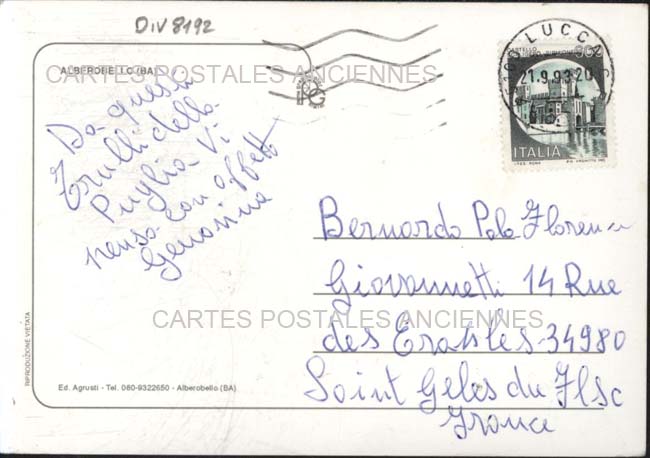 DIV 8192
ALBEROBELLO (BA)
CARTES POSTALES ANCIENNES
Da questi
Trulli della
Puglia Vi
penso con affetto
Genonina
LUCCA
21.9.93 20
ITALIA
Bernardo Polo Florence
Giovannetti 14 Rue
des Erables 34980
Saint Geles du Flsc
France
CARTES POSTALES ANCIENNES
RIPRODUZIONE VIETATA
Ed. Agrusti - Tel. 080-9322650 - Alberobello (BA)